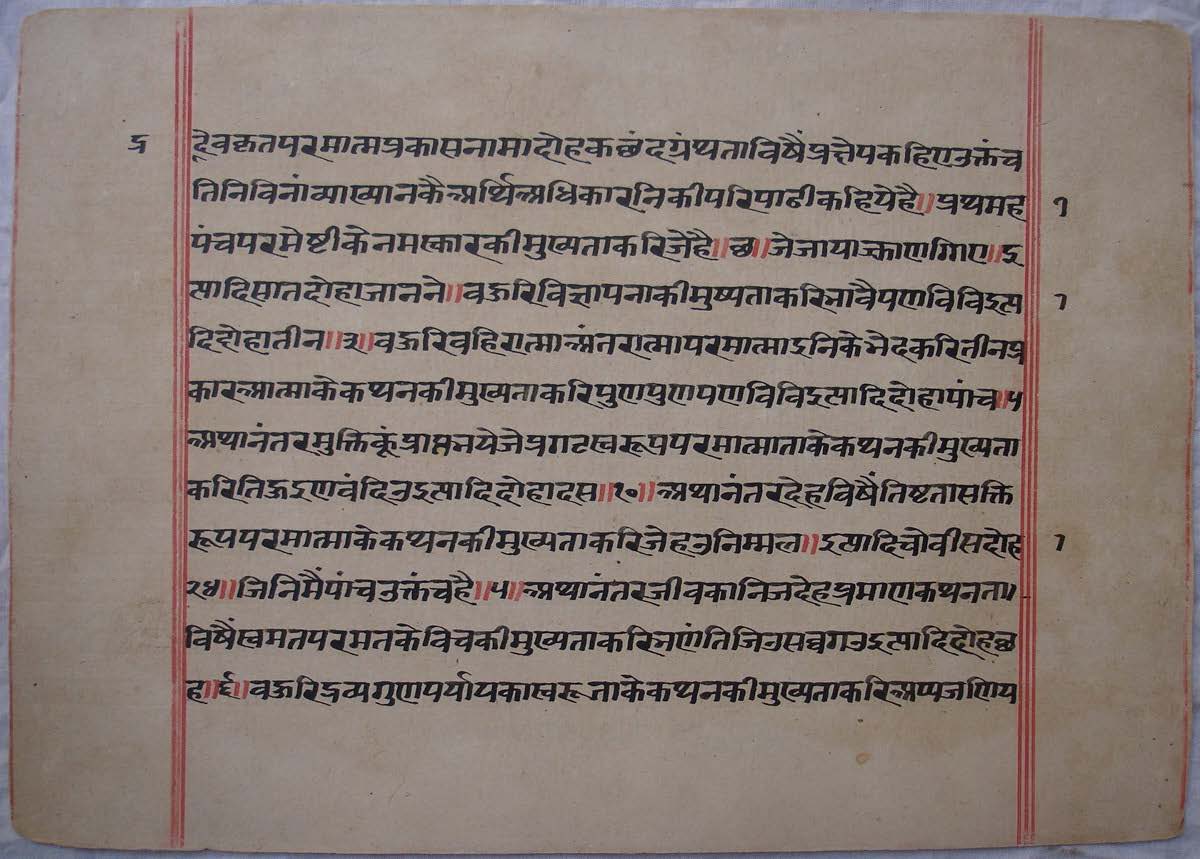 द्र देवकृतपरमात्मप्रकासनामादोहकछंदग्रंथताविषैंप्रक्षेपकहिएउक्तंच
तिनिविनांव्याख्यानकैअर्थिअधिकारनिकीपरिपाटीकहियेहै॥प्रथमह १
पंचपरमेष्टीकेनमस्कारकीमुख्यताकरिजेहै॥छ॥जेजायाज्झाणग्गिए॥इ
त्यादिसातदोहाजानने॥वऊरिविज्ञापनाकीमुष्यताकरिभावैपणविविइत्य १
दिदोहातीन॥३॥वऊरिवहिरात्माअंतरात्मापरमात्माइनिकेभेदकरितीनप्र
कारआत्माकेकथनकीमुख्यताकरिपुणपुणपणविविइत्यादिदोहापांच॥५
अथानंतरमुक्तिकूंप्राप्तभयेजेप्रगटस्वरूपपरमात्माताकेकथनकीमुख्यता
करितिऊइणवंदिउइत्यादिदोहादस॥१०॥अथानंतरदेहविषैंतिष्टतासक्ति
रूपपरमात्माकेकथनकीमुख्यताकरिजेहउनिम्मल॥इत्यादिचोवीसदोह १
२४॥जिनिमैंपांचउक्तंचहै॥५॥अथानंतरजीवकानिजदेहप्रमाणकथनता॥
विषैंस्वमतपरमतकेविचकीमुख्यताकरिभणंतिजिउसव्वगउइत्यादिदोहछ
ह॥६॥वऊरिद्रव्यगुणपर्यायकास्वरूताकेकथनकीमुख्यताकरिअप्पजणिय